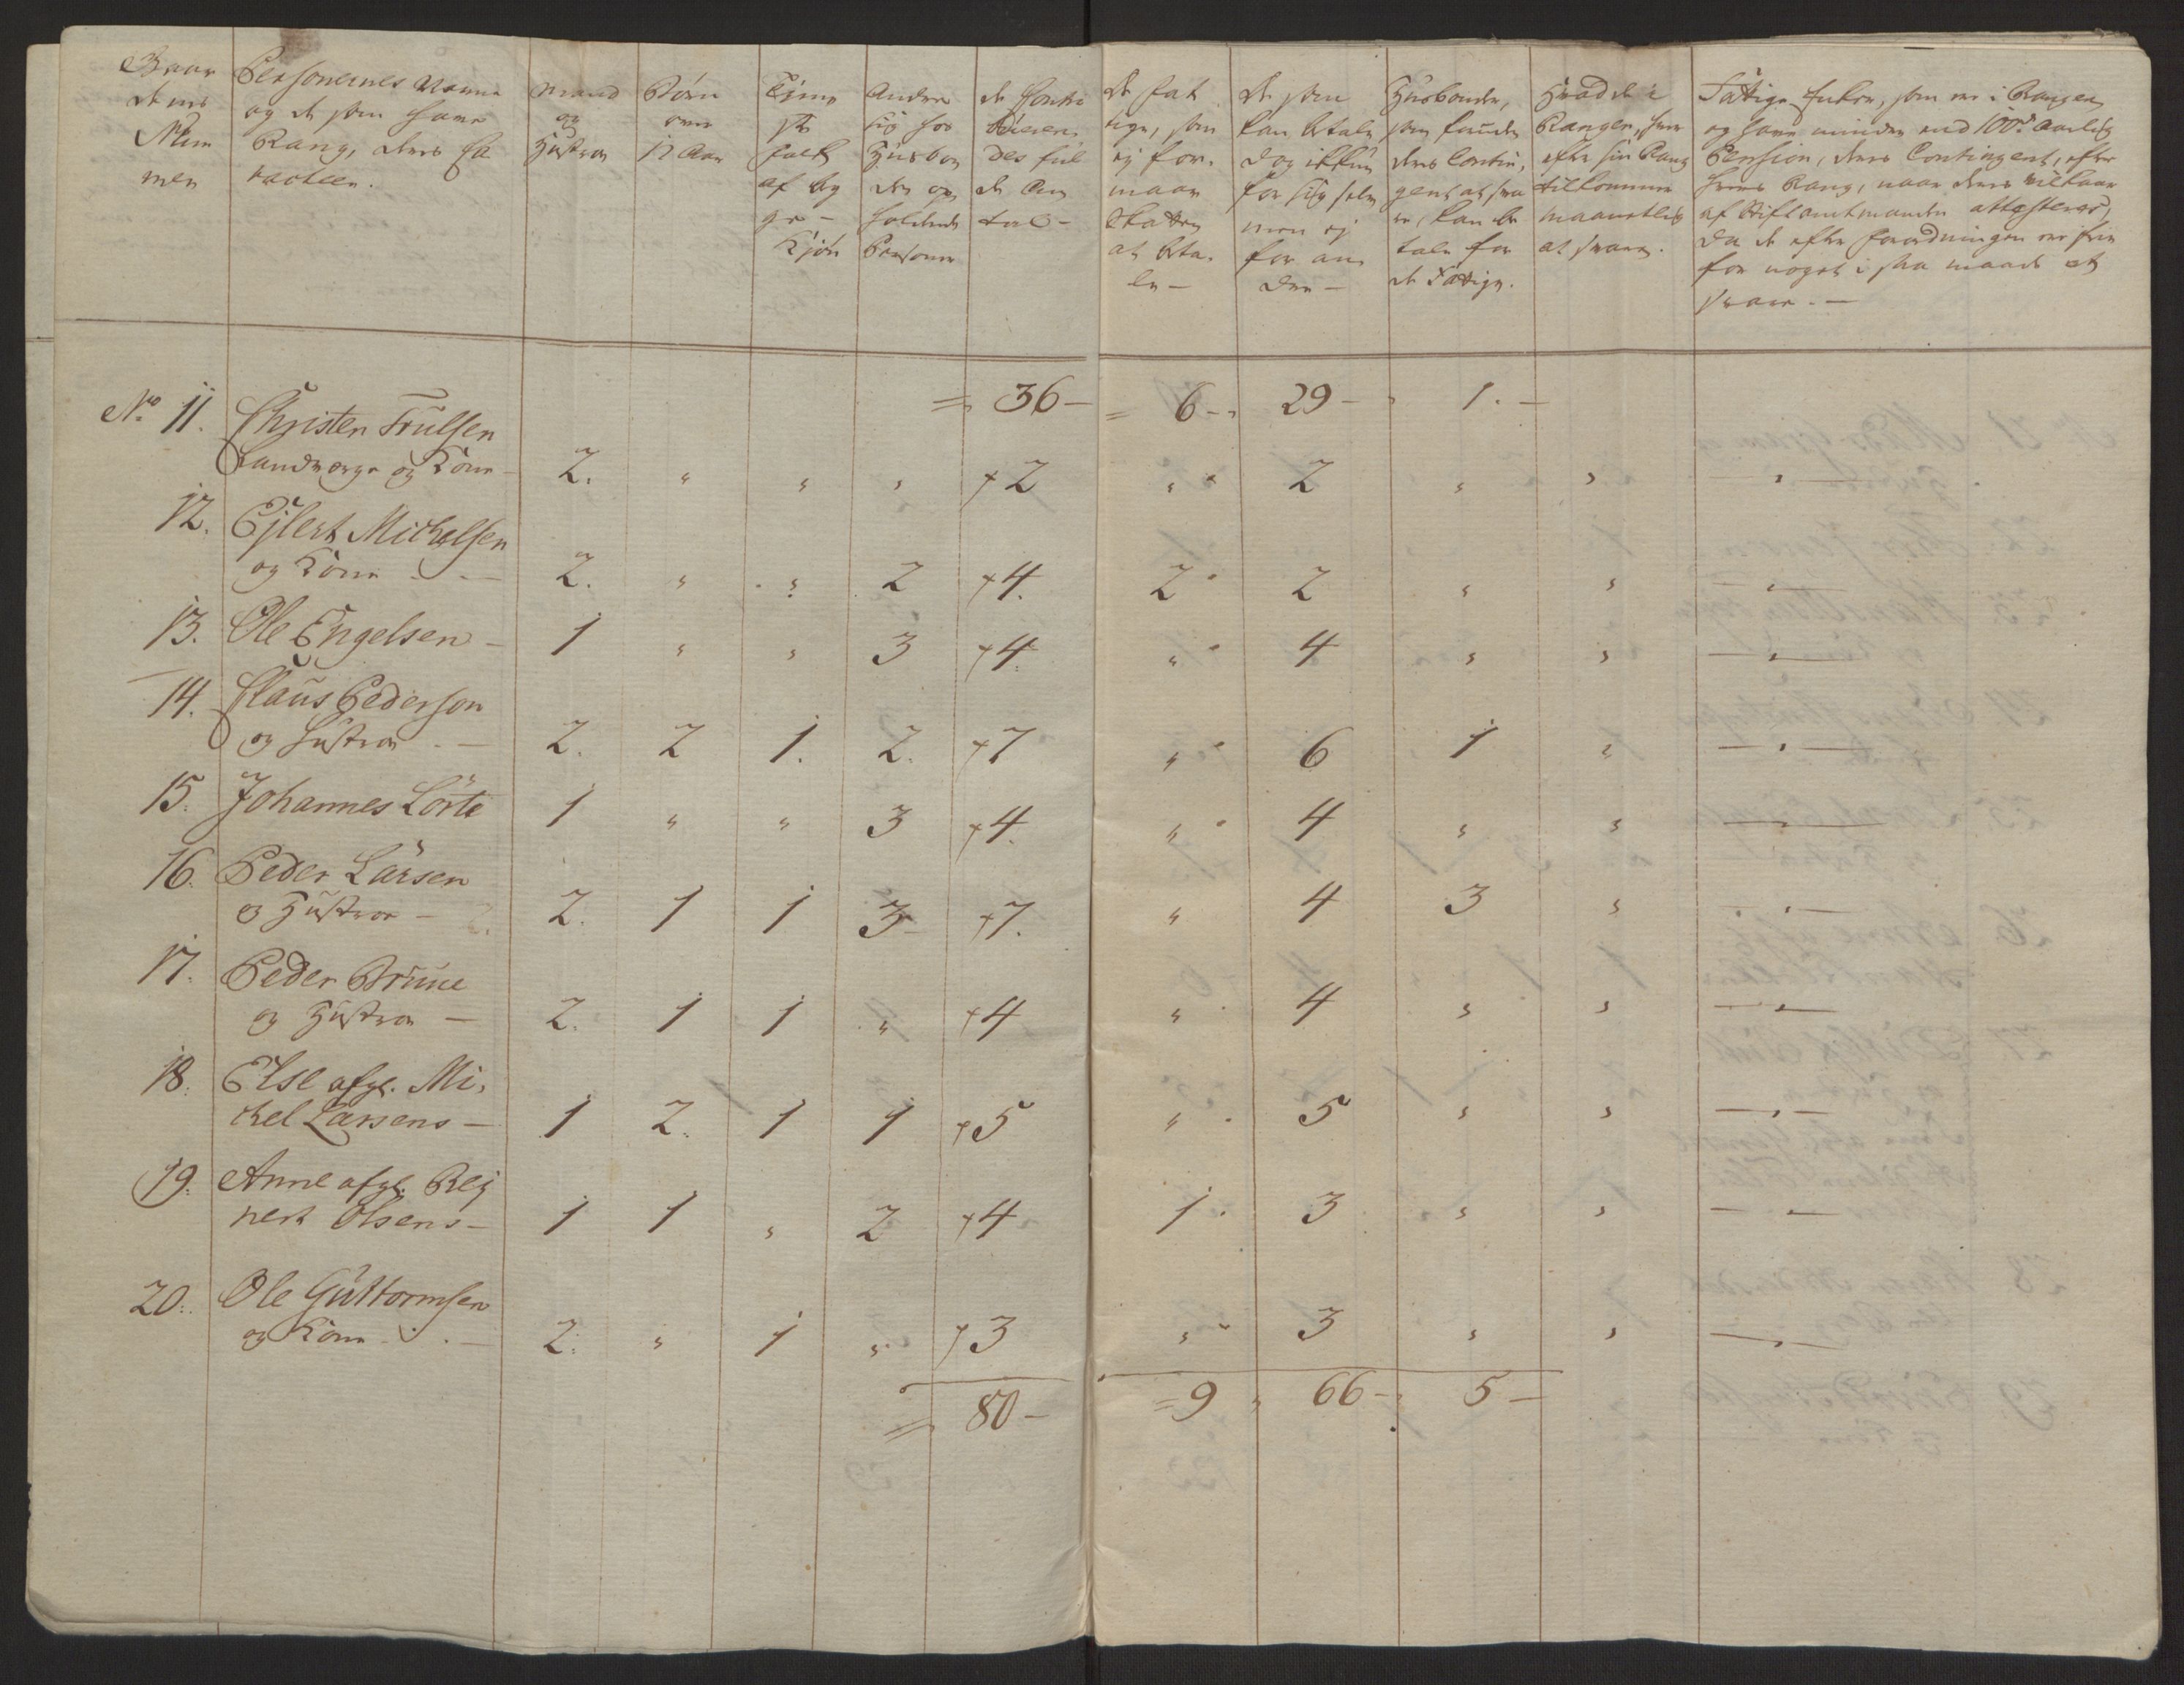 Gaar
dens
Num
mer
Personernes Navne
og de som have
Rang, deres Ca
racteer.
Mand
og
Hustroe
Börn
over
12 Aar
Tjene
ste
folk
af beg
ge
Kjön
Andre
sig hos
Husbon
den op
holdende
Personer
de Contri
bueren
des ful
de An
tal
De fat
tige, som
ej for
maae
Skatten
at beta
le
De som
kan betale
dog ikkun
for sig selv
men ej
for an
dre
Husbonde,
som foruden
deres Contin
gent at sva
re, kan be
tale for
de Fattige.
Hvad de i
Rangen, hver
efter sin Rang
tilkommer
maanetlig
at svare.
Fattige Enker, som ere i Rangen
og have mindre end 100 rd aarlig
Pension, deres Contingent, efter
hvers Rang, naar deres Vilkaar
af Stiftamtmanden attesteres,
da de efter Forordningen ere frie
for noget i saa maade at
svare.
= 36 - = 6 - 29 - 1. -
No 11. Christen Trulsen
Landværge og Kone - 2. " " " + 2 " 2 " " "
12. Ejlert Michelsen
og Kone - 2. " " 2 + 4. 2 2 " " "
13. Ole Engelsen - 1 " " 3 + 4. " 4 " " "
14. Claus Pederson
og Hustroe - 2. 2 1. 2. + 7 " 6 1 " "
15. Johannes Lörte 1 " " 3 + 4. " 4 " " "
16. Peder Larsen
og Hustroe - 2. 1 1 3 + 7. " 4 3 " "
17. Peder Bruue
og Hustroe - 2. 1 1 " + 4 " 4 " " "
18. Else afgl. Mi,
chel Larsens - 1 2. 1 1 + 5 " 5 " " "
19. Anne afgl. Rej
nert Olsens - 1 1 " 2 + 4 1 3 " " "
20. Ole Guttormsen
og Kone - 2. " 1 " + 3 " 3 " " "
= 80 - = 9 " 66 - 5 -